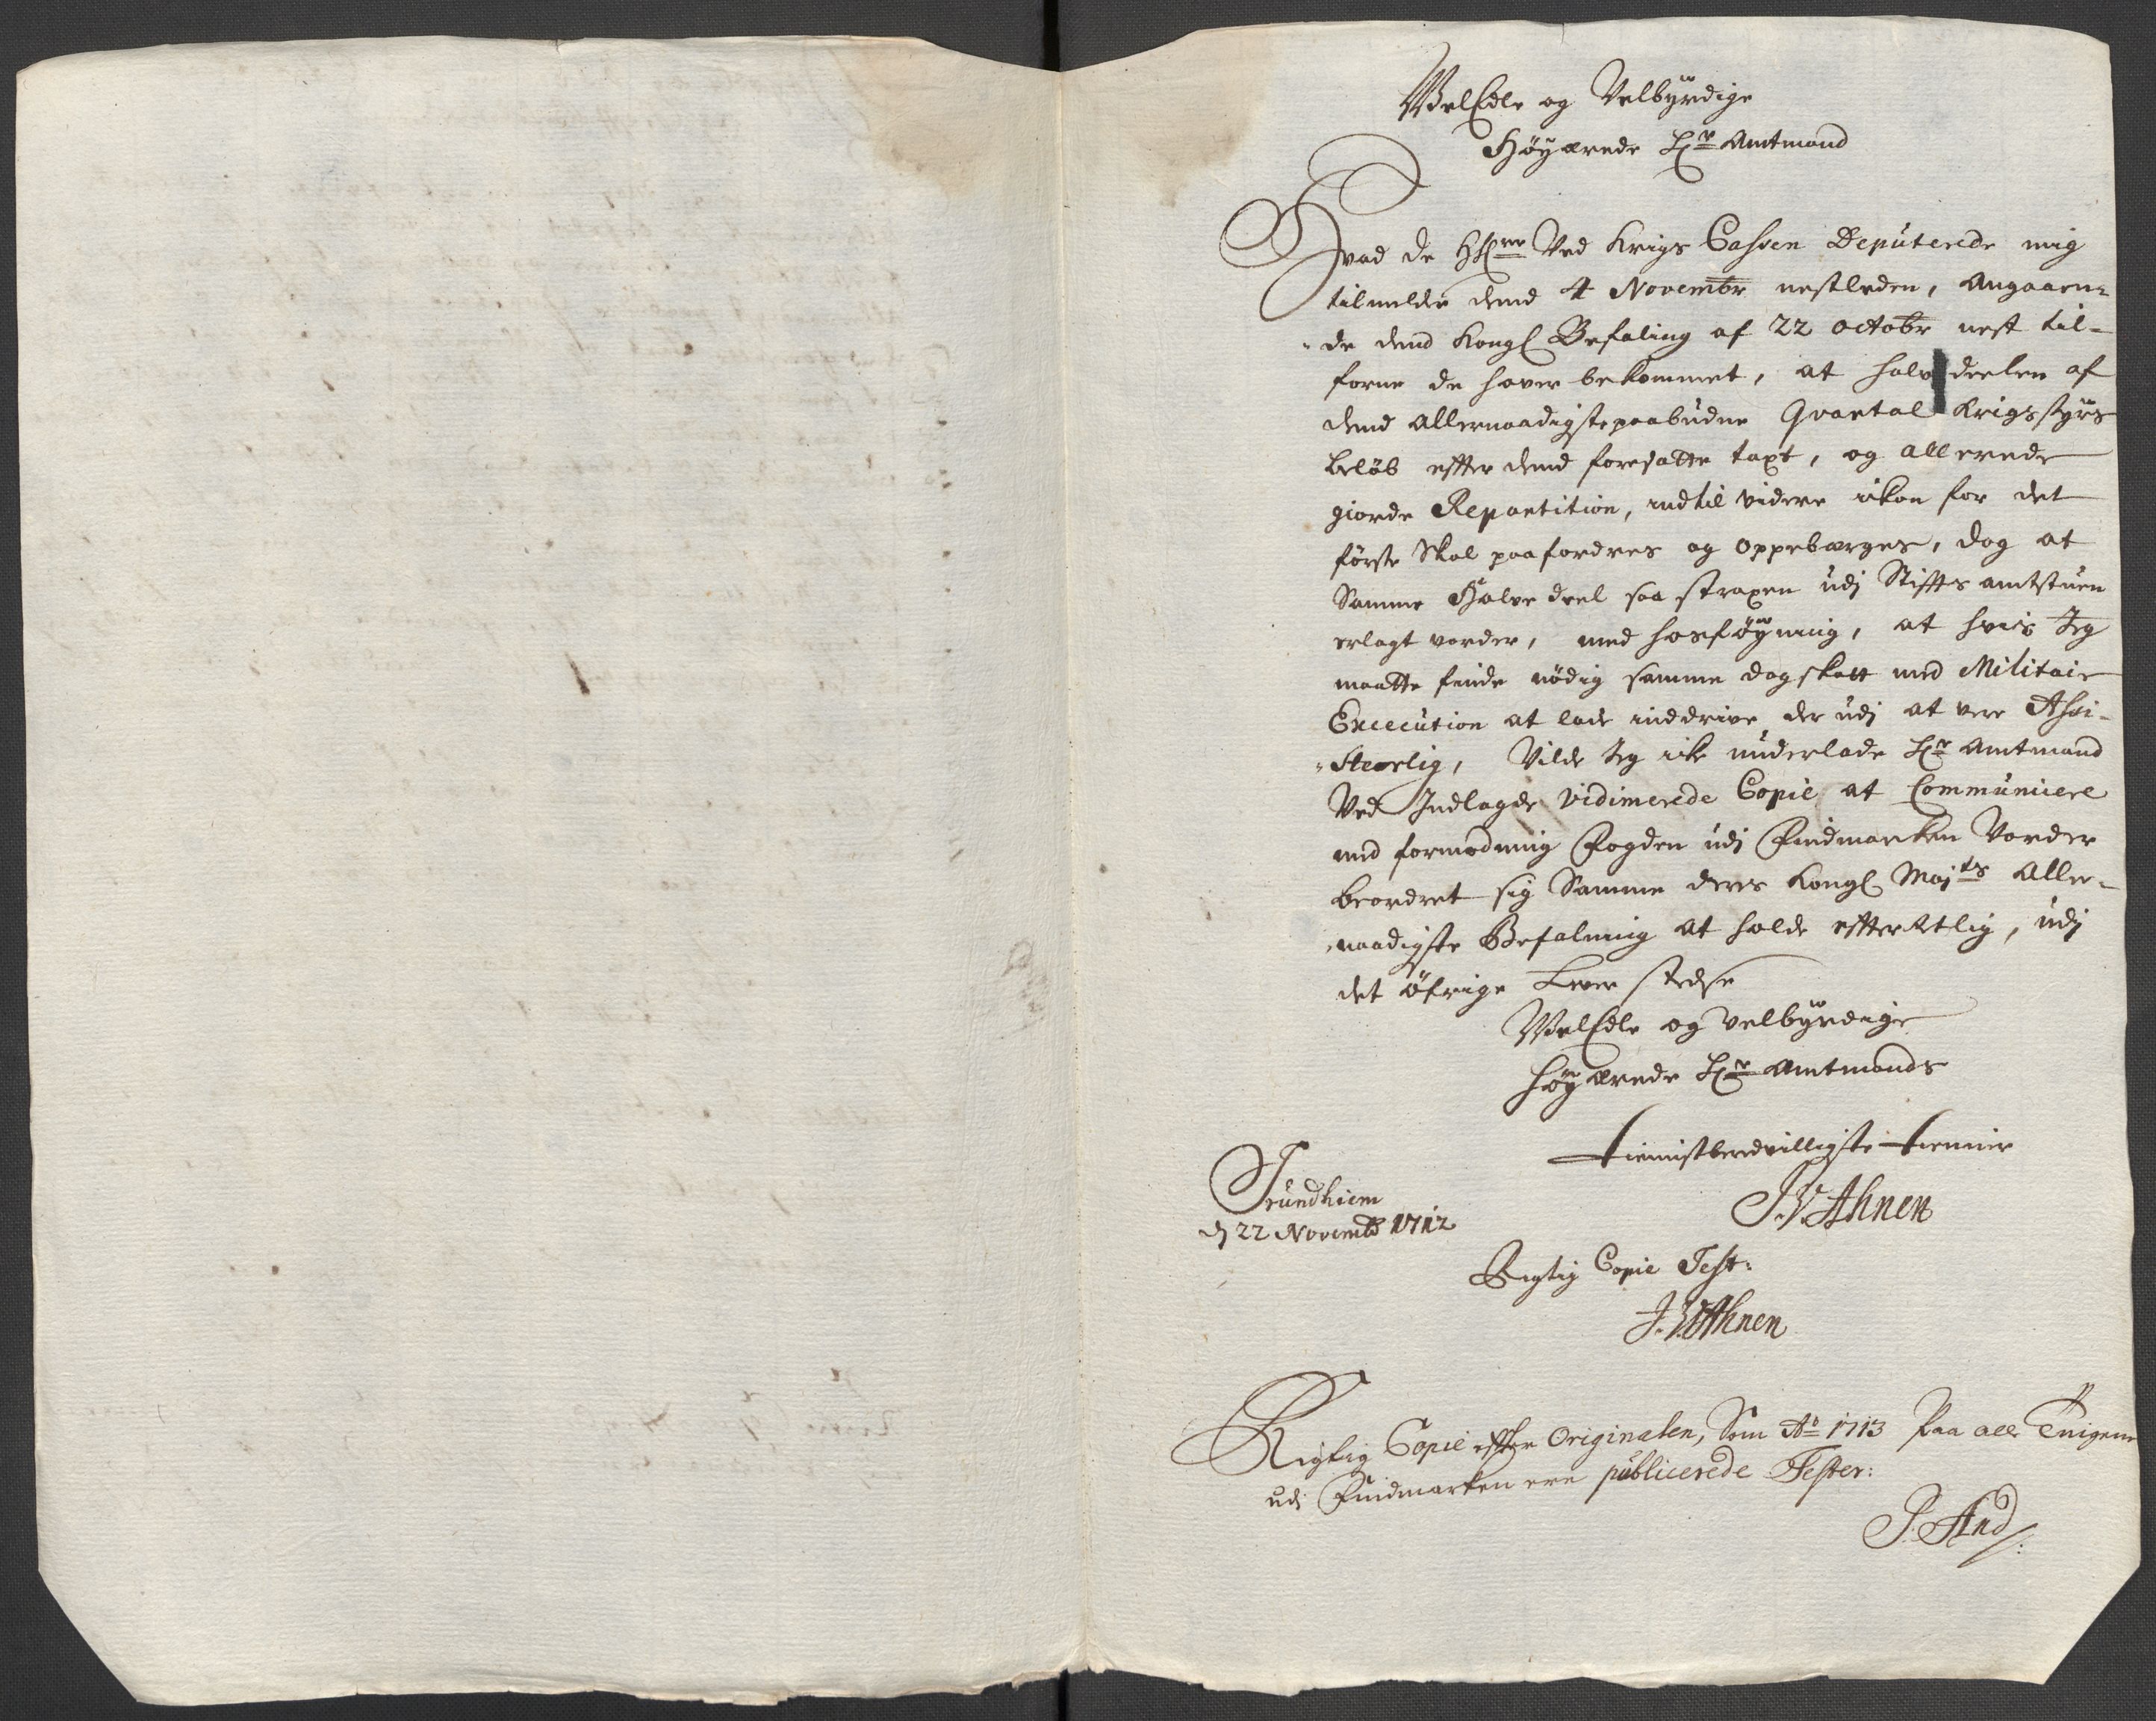 WelEdle og Velbyrdige
Høyærede Hr Amtmand
Hvad de HHrr Ved Krigs Cassen Deputerede mig
tilmelde dend 4 Novembr nestleden, Angaaen-
de dend Kongl Befaling af 22 octobr nest til-
forne de haver bekommet, at halve deelen af
dend Allernaadigste paabudne Qvartal Krigsstyrs
beløb effter dend foresatte taxt, og allerede
giorde Repartition, indtil videre ickon for det
første Skal paafordres og oppebærges, dog at
Samme Halve deel saa straxen udj Stiffts amtstuen
erlagt vorder, med hosføyning, at hvis Jeg
maatte finde nødig samme dagskatt med Militair
Execution at lade inddrive der udj at vere Assi-
steerlig, Vilde Jeg icke underlade Hr Amtmand
Ved Indlagde vidimerede Copie at Communicere
med formodning Fogden udj Findmarken Vorder
beordret sig Samme deres Kongl Majts Aller-
naadigste Befalning at holde effterRtlig, udj
det øfrige Lever stedse
WelEdle og velbyrdige
høyærede Hr Amtmands
tienistberedvilligste tienner
Trundhiem
dj 22 Novembr 1712
J. V. Ahnen
Rigtig Copie Test:
J. V. Ahnen
Rigtig Copie effter Originalen, Som Ao 1713 Paa alle Tingene
udj Findmarken ere publicerede Tester:
P. And/: